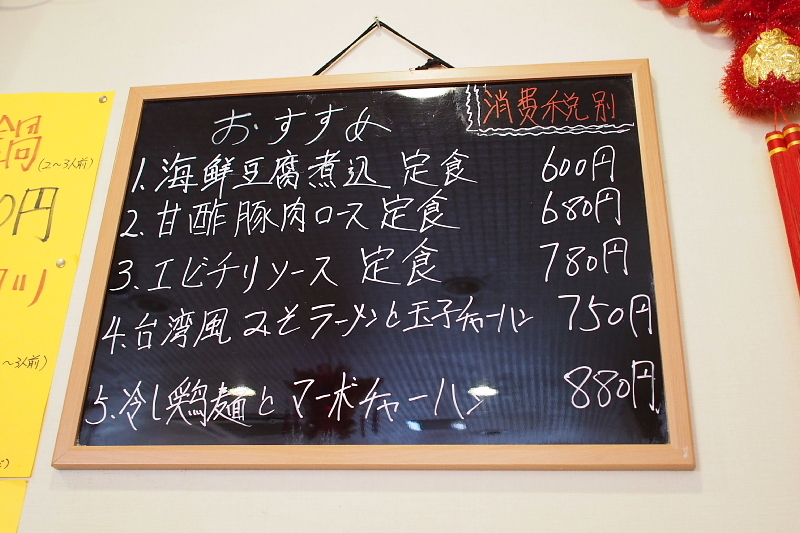 おすすめ
消費税別
1.海鮮豆腐煮込 定食 600円
2.甘酢豚肉ロース定食 680円
3.エビチリソース 定食 780円
4.台湾風みそラーメンと玉子チャーハン 750円
5.冷し鶏麺とマーボチャーハン 880円
鍋
(2〜3人前)
0円
〜3人前)